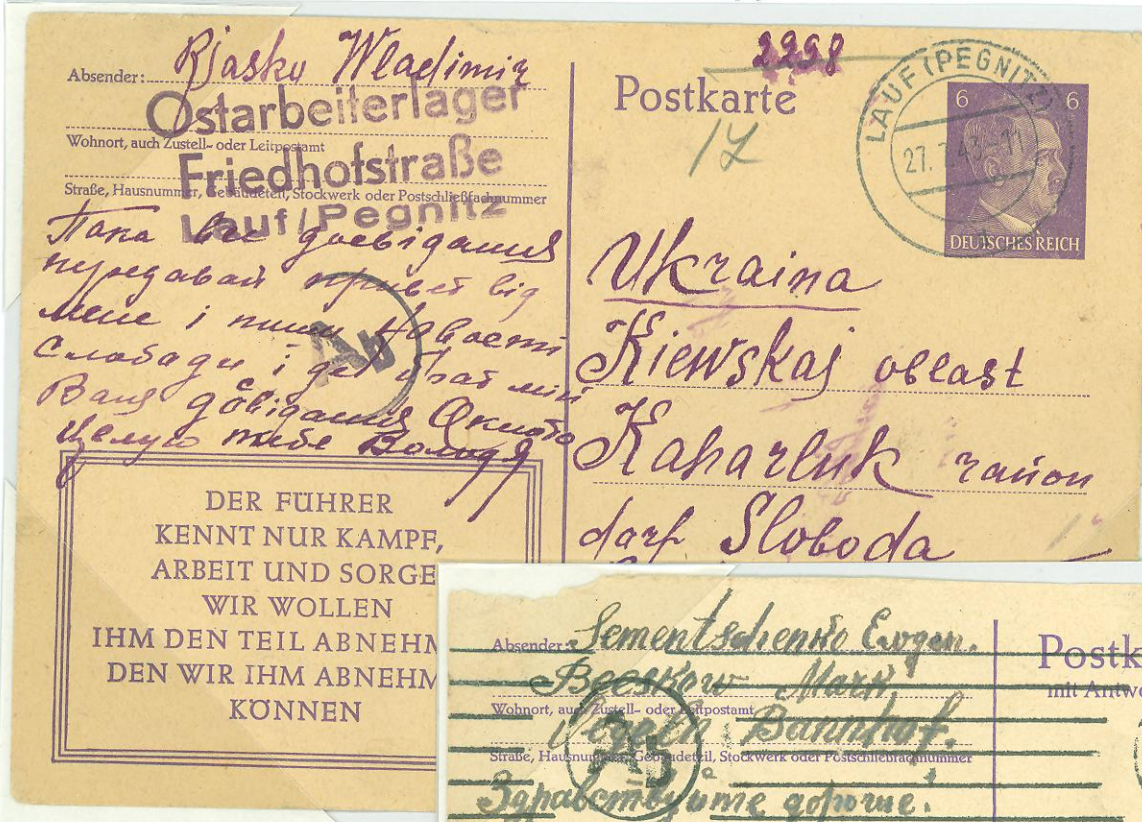 2298
Absender: Rjasku Wladimir
Ostarbeiterlager
Wohnort, auch Zustell- oder Leitpostamt
Friedhofstraße
Straße, Hausnummer, Gebäudeteil, Stockwerk oder Postschließfachnummer
Lauf/Pegnitz
Пана все довідания
передавай привет від
мене і пиши Навости
Слабади і де брат мій
Ваня довідания
Целую тебе Володя
Ab
DER FÜHRER
KENNT NUR KAMPF,
ARBEIT UND SORGE
WIR WOLLEN
IHM DEN TEIL ABNEHM
DEN WIR IHM ABNEHM
KÖNNEN
Postkarte
LAUF (PEGNITZ)
27. 7. 43 - 11
6 6
DEUTSCHES REICH
Ukraina
Kiewskaj oblast
Kaharluk район
darf Sloboda
Absender: Sementschenko Ewgen.
Beeskow Mark,
Wohnort, auch Zustell- oder Leitpostamt
Bannhof.
Straße, Hausnummer, Gebäudeteil, Stockwerk oder Postschließfachnummer
Здравствуйте дорогие.
Postk
mit Antwo